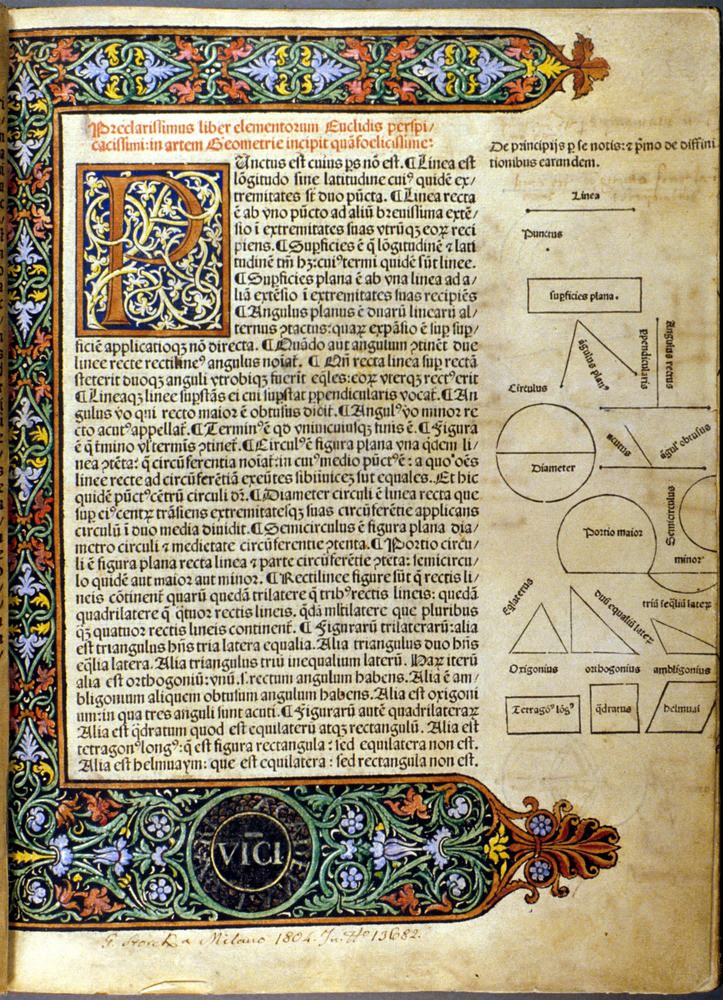 Preclarissimus liber elementorum Euclidis perspi/
cacissimi: in artem Geometrie incipit quãfoelicissime:
PUnctus est cuius ps nõ est. ¶ Linea est
lõgitudo sine latitudine cuiꝰ quidē ex/
tremitates sr̃ duo pũcta. ¶ Linea recta
ē ab vno pũcto ad aliũ breuissima extē/
sio ĩ extremitates suas vtrũqꝫ eoꝝ reci
piens. ¶ Supficies ē q̃ lõgitudinē ⁊ lati
tudinē tm̃ hꝫ: cuiꝰ termi quidē sũt linee.
¶ Supficies plana ē ab vna linea ad a/
liã extēsio ĩ extremitates suas recipiēs
¶ Angulus planus ē duarũ linearũ al/
ternus ꝯtactus: quaꝝ expãsio ē sup sup/
ficiē applicatioqꝫ nõ directa. ¶ Quãdo aut angulum ꝯtinēt due
linee recte rectilineꝰ angulus noiat̃. ¶ Qñ recta linea sup rectã
steterit duoqꝫ anguli vtrobiqꝫ fuerit eq̃les: eoꝝ vterqꝫ rectꝰ erit
¶ Lineaqꝫ linee supstãs ei cui supstat ppendicularis vocat̃. ¶ An
gulus vo qui recto maior ē obtusus dicit̃. ¶ Angulꝰ vo minor re
cto acutꝰ appellat̃. ¶ Terminꝰ ē qd vniuscuiusqꝫ finis ē. ¶ Figura
ē q̃ tmino vl terminis ꝯtinet̃. ¶ Circulꝰ ē figura plana vna qdem li/
nea ꝯtēta: q̃ circũferentia noiat̃: in cuiꝰ medio pũctꝰ ē: a quo oēs
linee recte ad circũferētiã exeũtes sibiinuicē sut equales. Et hic
quidē pũctꝰ cētrũ circuli dr̃. ¶ Diameter circuli ē linea recta que
sup eiꝰ centꝝ trãsiens extremitatesqꝫ suas circũferētie applicans
circulũ ĩ duo media diuidit. ¶ Semicirculus ē figura plana dia/
metro circuli ⁊ medietate circũferentie ꝯtenta. ¶ Portio circu/
li ē figura plana recta linea ⁊ parte circũferētie ꝯtēta: semicircu/
lo quidē aut maior aut minor. ¶ Rectilinee figure sũt q̃ rectis li/
neis cõtinent̃ quarũ quedã trilatere q̃ tribꝰ rectis lineis: quedã
quadrilatere q̃ qtuor rectis lineis. qdã mltilatere que pluribus
qꝫ quatuor rectis lineis continent̃. ¶ Figurarũ trilaterarũ: alia
est triangulus hñs tria latera equalia. Alia triangulus duo hñs
eq̃lia latera. Alia triangulus triũ inequalium laterũ. Haꝝ iterũ
alia est orthogoniũ: vnũ .s. rectum angulum habens. Alia ē am/
bligonium aliquem obtusum angulum habens. Alia est oxigoni
um: in qua tres anguli sunt acuti. ¶ Figurarũ autē quadrilateraꝝ
Alia est qdratum quod est equilaterũ atqꝫ rectangulũ. Alia est
tetragonꝰ longꝰ: q̃ est figura rectangula: sed equilatera non est.
Alia est helmuaym: que est equilatera: sed rectangula non est.
De principijs p se notis: ⁊ pmo de diffini
tionibus earundem.
Linea
Punctus
supficies plana.
ãgulus planꝰ
ppendicularis
Angulus rectus
Circulus
acutus
ãgulꝰ obtusus
Diameter
Portio maior
Semicirculus
minor
Eqlaterus
duũ equaliũ lateꝝ
triũ ieq̃liũ lateꝝ
Oxigonius
orthogonius
ambligonius
Tetragõꝰ lõgꝰ
qdratus
helmuai
VICI
G. Storck a Milano 1804. No. 13682.